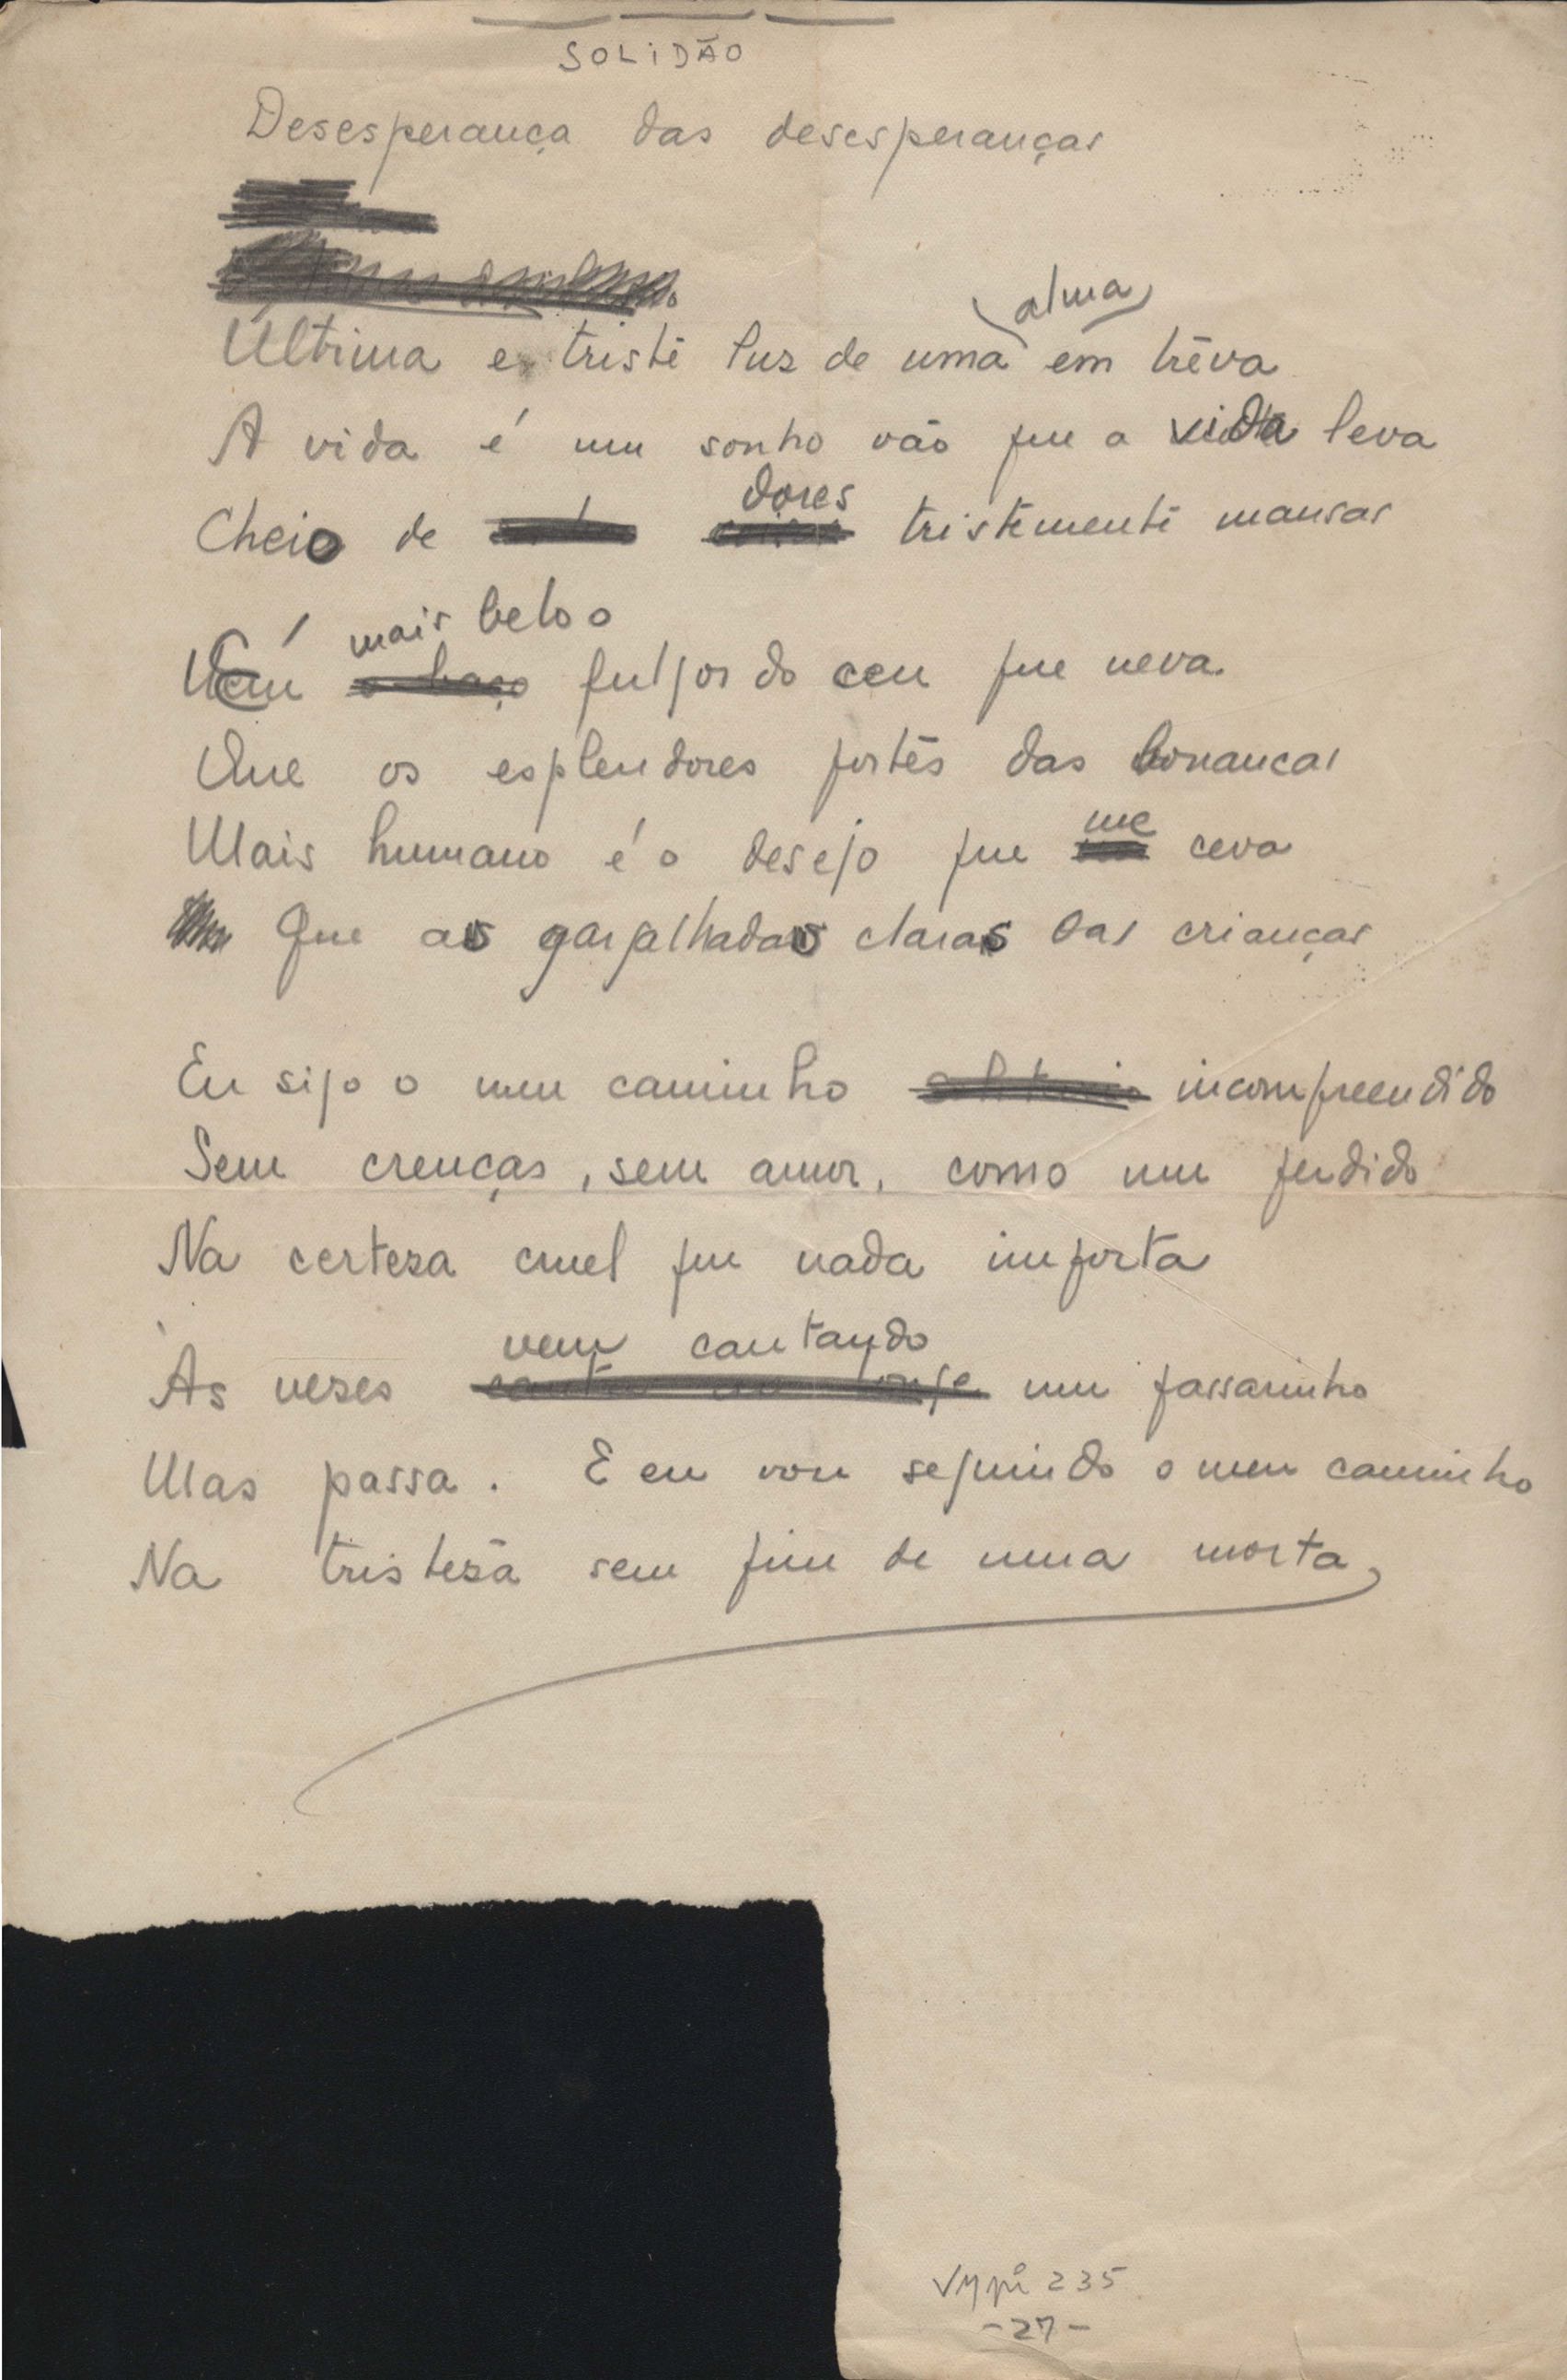 SOLIDÃO
Desesperança das desesperanças
alma
Ultima e triste luz de uma em tréva
A vida é um sonho vão que a vida leva
dores
Cheio de tristemente mansas
mais belo o
É fulgor do ceu que neva
Que os esplendores fortes das bonancas
me
Mais humano é o desejo que ceva
Que as gargalhadas claras das crianças
Eu sigo o meu caminho incompreendido
Sem crenças, sem amor, como um perdido
Na certeza cruel que nada importa
vem cantando
Às vezes um passarinho
Mas passa. E eu vou seguindo o meu caminho
Na tristeza sem fim de uma morta
235
-27-